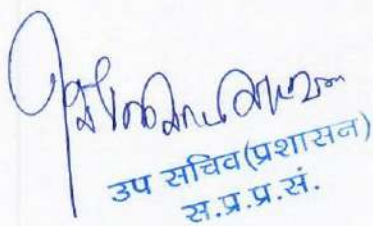 उप सचिव (प्रशासन)
स.प्र.प्र.सं.